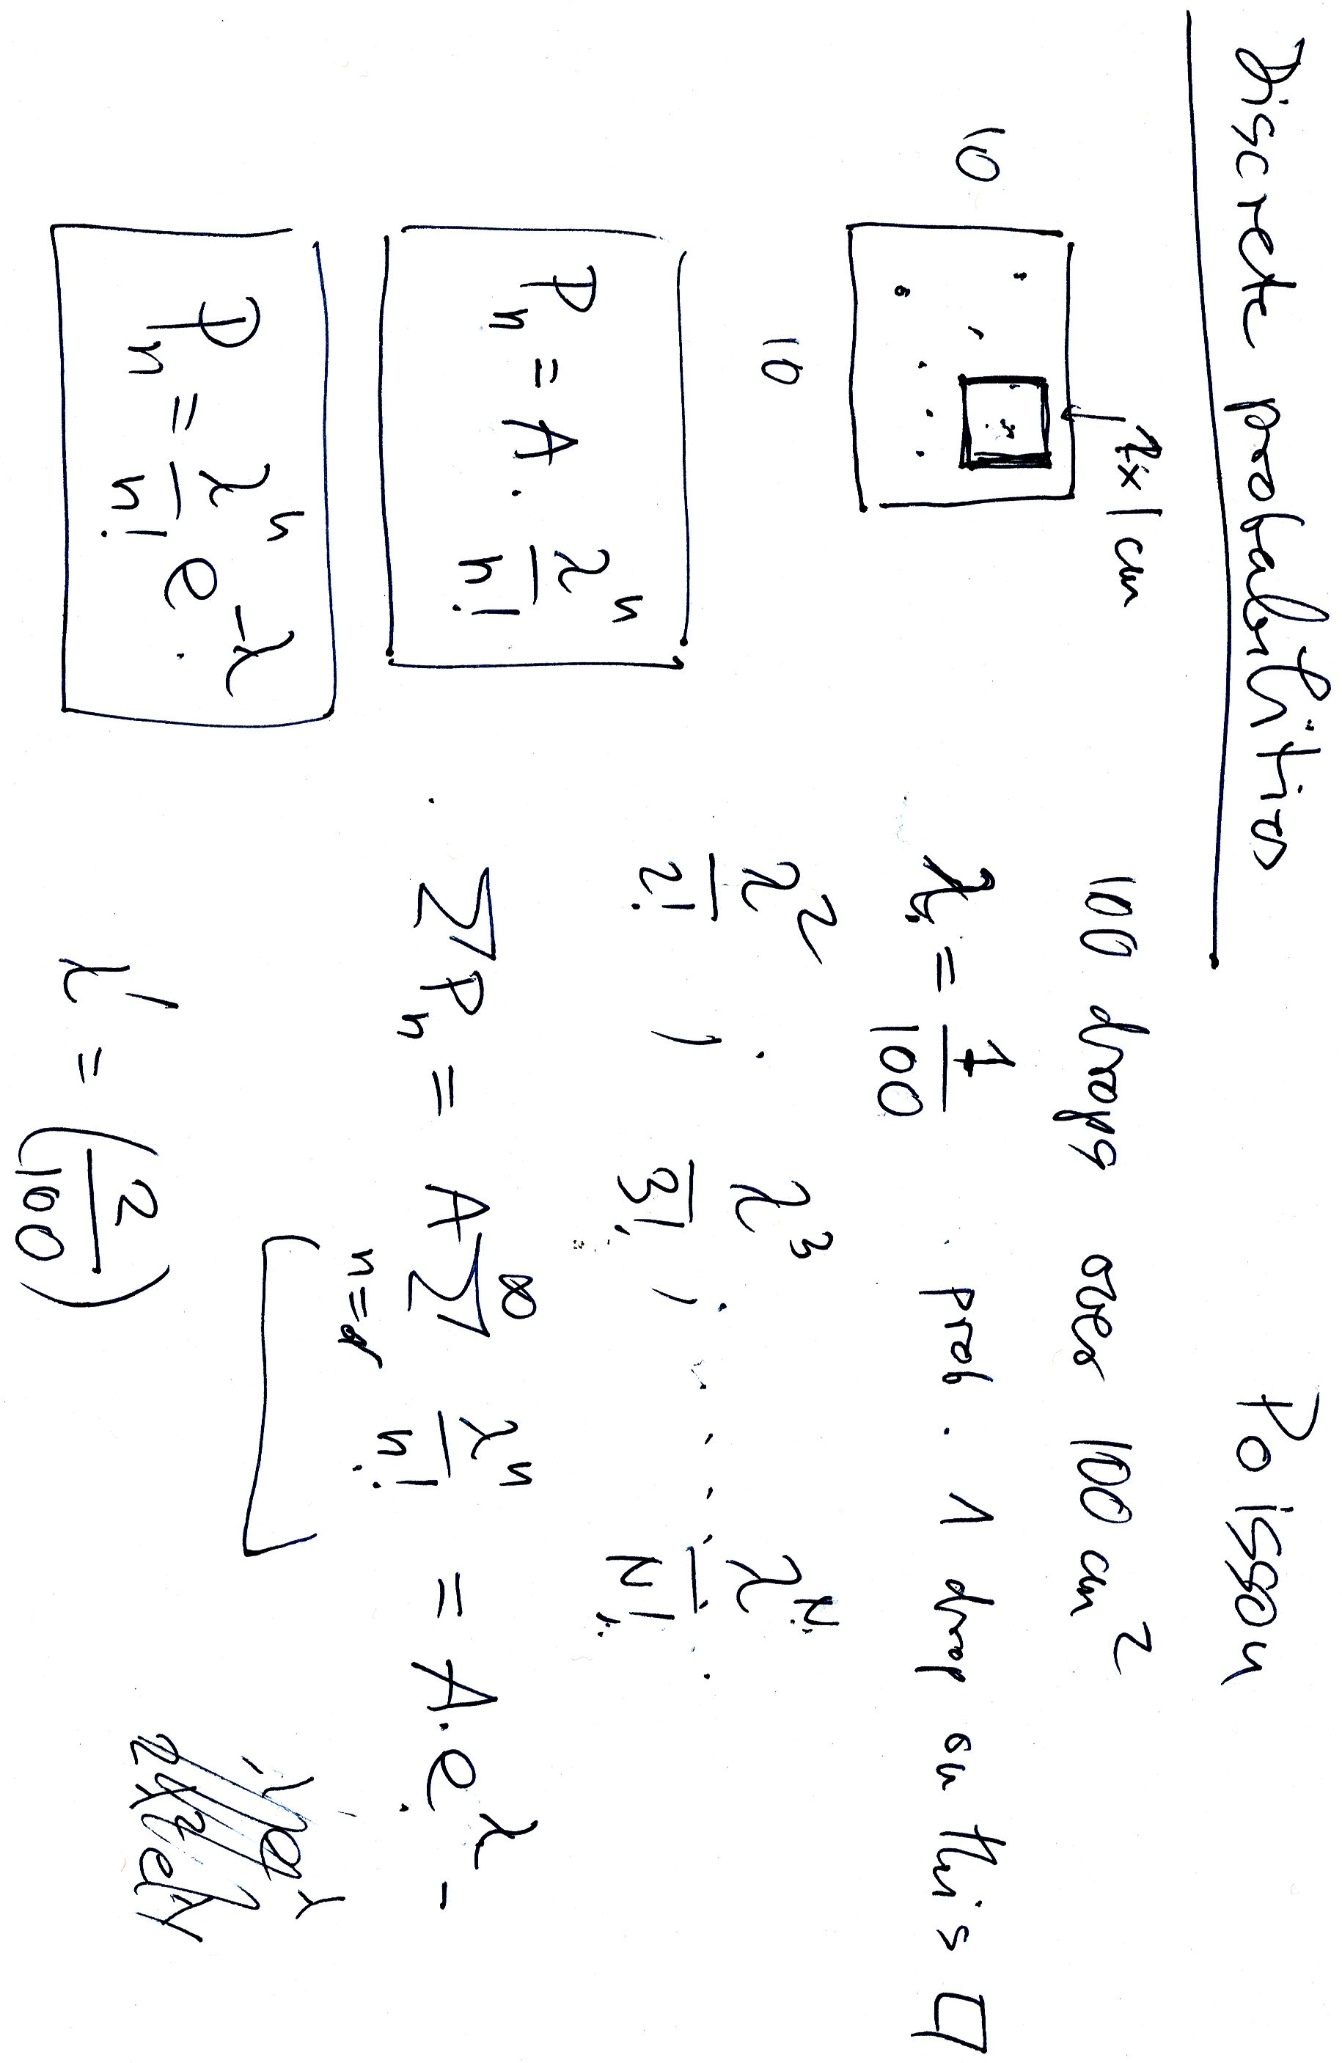 Discrete probabilities Poisson
100 drops over 100 cm²
1x1cm
10
10
λ = 1/100 prob. 1 drop on this □
λ²/2! , λ³/3! , . . . . λᴺ/N!
Pₙ = A · λⁿ/n!
∑Pₙ = A ∑ₙ₌₀^∞ λⁿ/n! = A.e^λ -
Pₙ = λⁿ/n! e^-λ
λ' = (2/100)